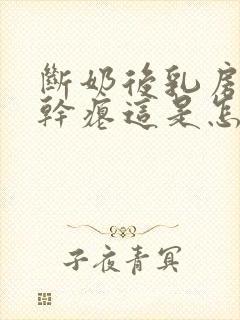 斷奶後乳房
幹癟這是怎
子夜青冥